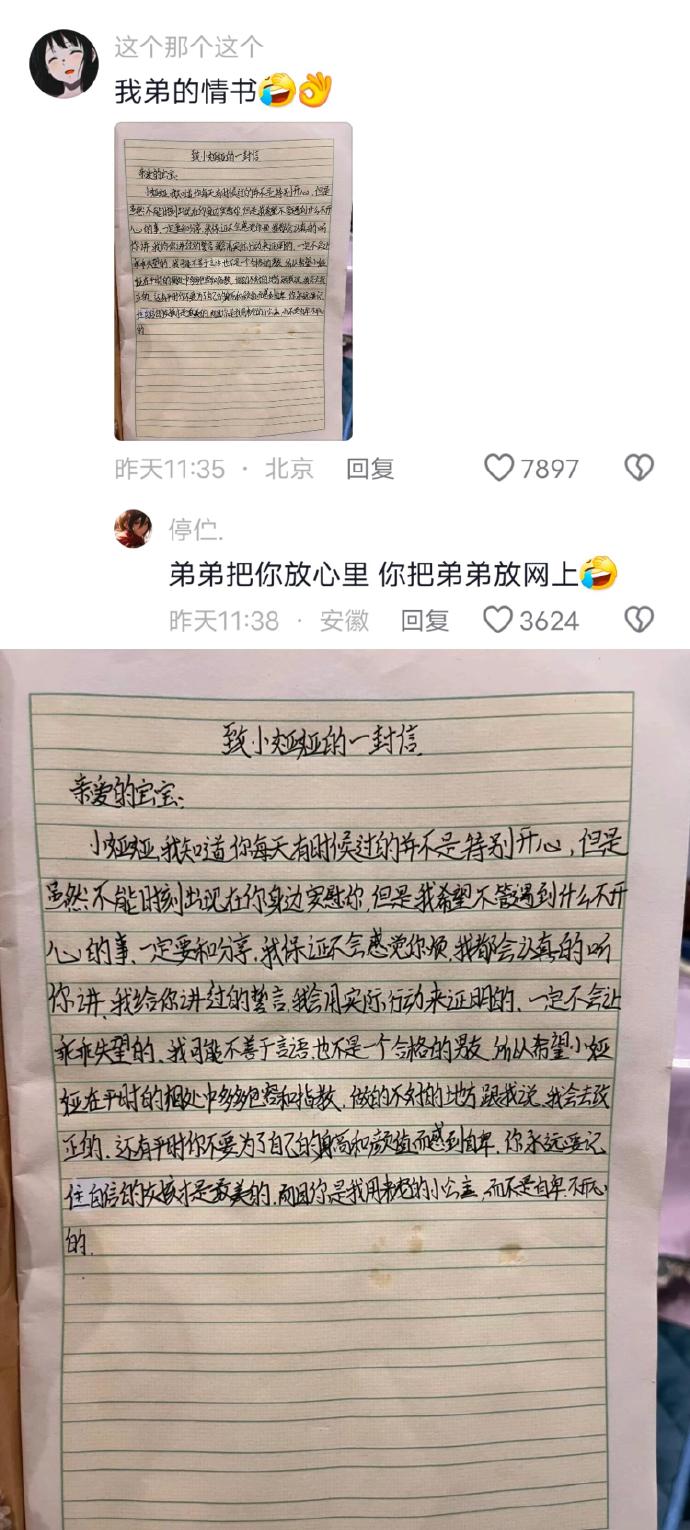 这个那个这个
我弟的情书🤣👌
致小娅娅的一封信
亲爱的宝宝:
昨天11:35 · 北京 回复 7897
停伫.
弟弟把你放心里 你把弟弟放网上🤣
昨天11:38 · 安徽 回复 3624
致小娅娅的一封信
亲爱的宝宝:
小娅娅,我知道你每天有时候过的并不是特别开心,但是
虽然不能时刻出现在你身边安慰你,但是我希望不管遇到什么不开
心的事,一定要和分享,我保证不会感觉你烦,我都会认真的听
你讲,我给你讲过的誓言,我会用实际行动来证明的,一定不会让
乖乖失望的,我可能不善于言语,也不是一个合格的男友,所以希望小娅
娅在平时的相处中多多包容和指教,做的不好的地方跟我说,我会去改
正的,还有平时你不要为了自己的身高和颜值而感到自卑,你永远要记
住自信的女孩才是最美的,而且你是我用来宠的小公主,而不是自卑不开心
的.